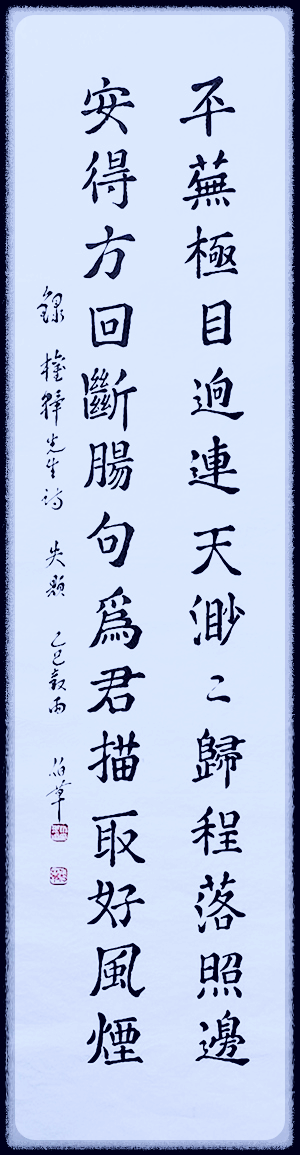 平蕪極目逈連天渺〻歸程落照邊
安得方回斷腸句為君描取好風煙
錄 權釋先生詩 失題 乙巳穀雨